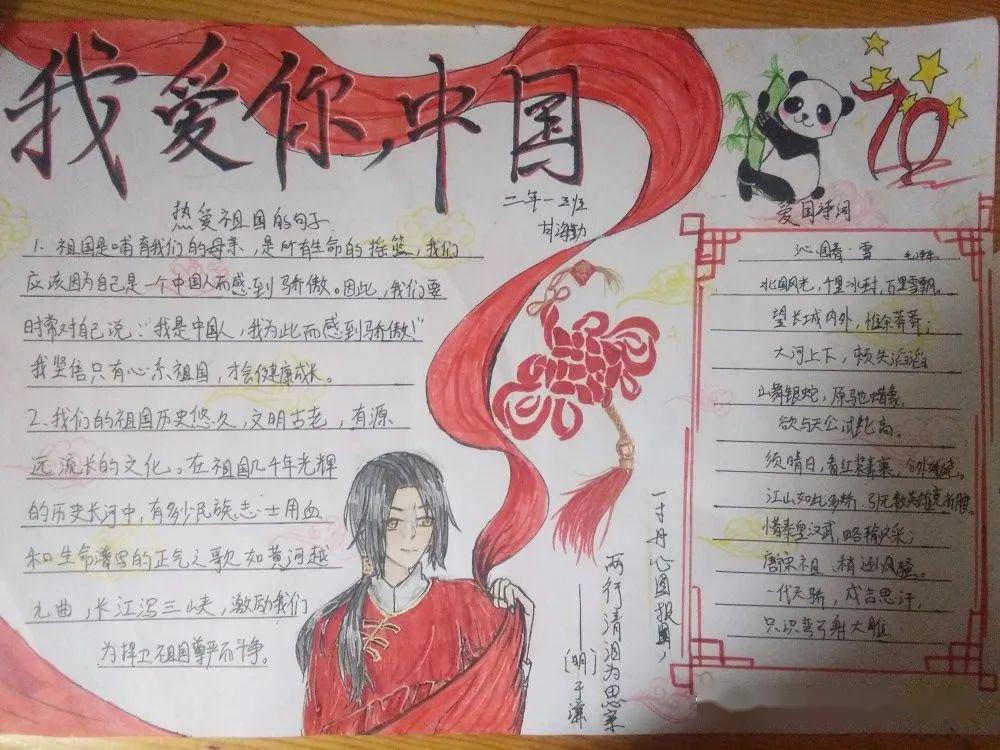 我爱你,中国
70
二年一班
热爱祖国的句子
1、祖国是哺育我们的母亲,是所有生命的摇篮,我们
应该因为自己是一个中国人而感到骄傲。因此,我们要
时常对自己说:“我是中国人,我为此而感到骄傲!”
我坚信只有心系祖国,才会健康成长。
2、我们的祖国历史悠久,文明古老,有源
远流长的文化。在祖国几千年光辉
的历史长河中,有多少民族志士用血
和生命谱写的正气之歌如黄河越
九曲,长江泻三峡,激励我们
为捍卫祖国尊严而斗争。
一寸丹心图报国,
两行清泪为思亲
——〔明〕于谦
爱国诗词
沁园春·雪 毛泽东
北国风光,千里冰封,万里雪飘。
望长城内外,惟余莽莽;
大河上下,顿失滔滔
山舞银蛇,原驰蜡象
欲与天公试比高。
须晴日,看红装素裹,分外妖娆。
江山如此多娇,引无数英雄竞折腰
惜秦皇汉武,略输文采;
唐宗宋祖,稍逊风骚。
一代天骄,成吉思汗,
只识弯弓射大雕